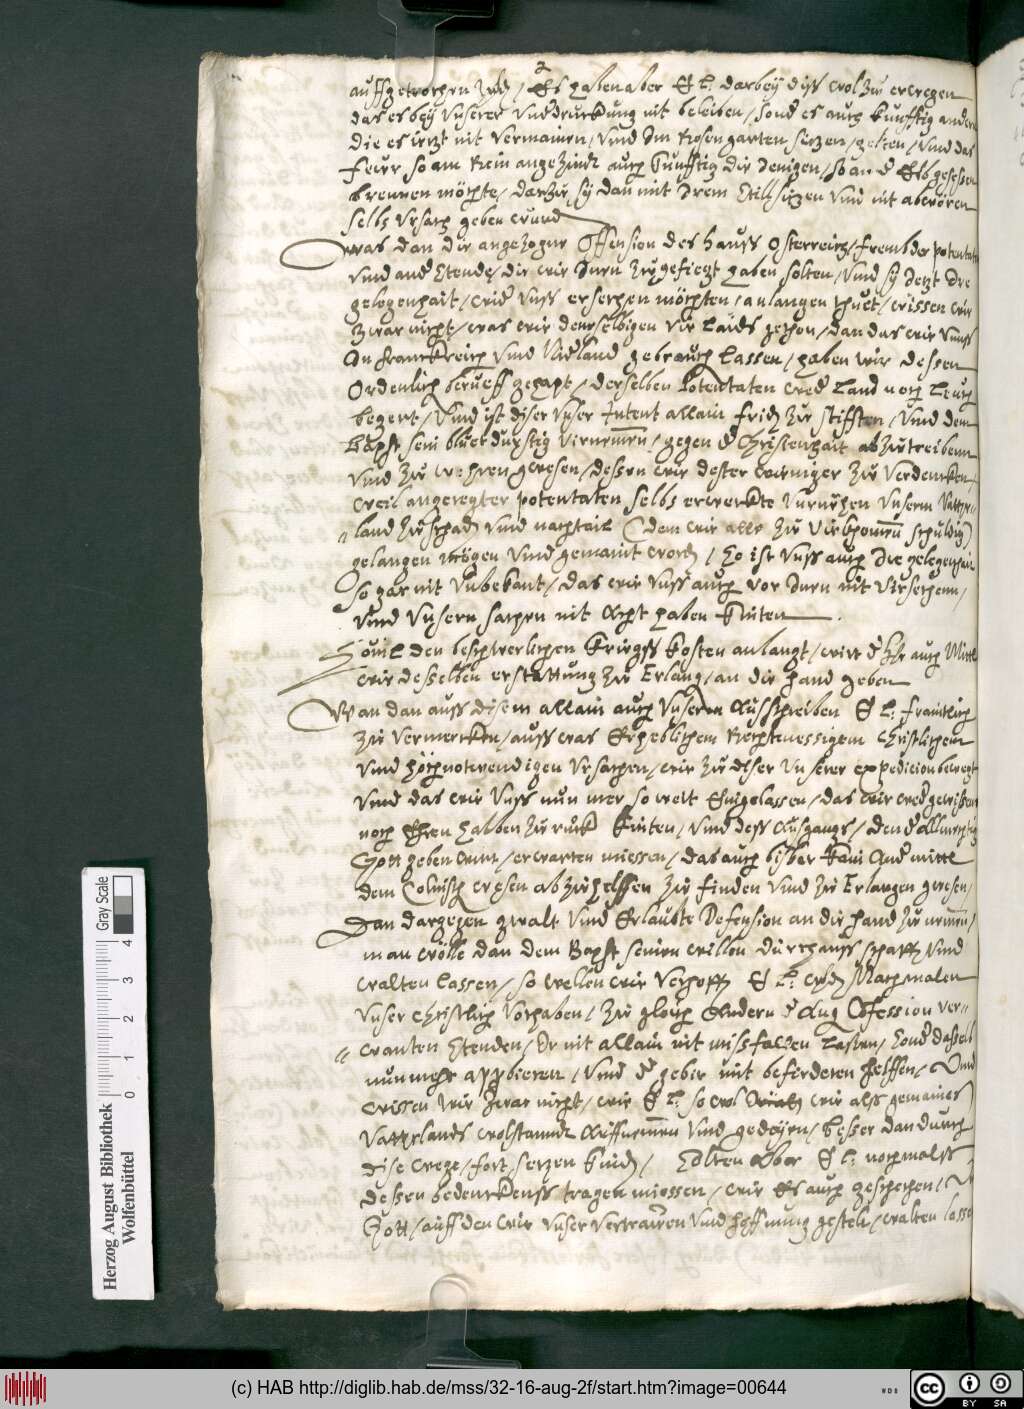 2
auffgetrochen wurd, Es haben aber E L. darbeÿ diß wol zu erwegen
das es beÿ unserer underdruckung nit beleiben, sond es auch kunfftig andern
die es ietzt nit vermainen, und Im Rosengarten sitzen, gelten, und das
feur so am Rein angezündt auch kunfftig die Jenigen, so an d Elb gesessen
brennen möchte, darzu sÿ dan mit Irem Stillsitzen und nit abwören
selbs Ursach geben wurd
Was dan die angezogne Offension des hauß Osterreich, frembder potentaten
und and Stende, die wir Inen zugefüegt haben solten, und sÿ Jetzt Ire
gelegenhait, wid unß ersehen möchten, anlangen thuet, wissen wir
zwar nicht, was wir denselbigen vir Laids gethon, dan das wir unnß
In Franckreich und Nidland gebrauch lassen, haben wir dessen
Ordenlich berueff gehapt, derselben Potentaten wed Land noch Leuth
begert, Und ist diser unser Intent allain frid zu stifften, und dem
Bapst sein bluetdurstig virnemen, gegen d Christenhait abzutreiben
und zu wehren gewesen, dessen wir dester weniger zu verdencken,
weil angeregter potentaten selbs erweckte unruhen unserm Vatter-
land zu schad und nachtail (dem wir alle zu vürkhomen schuldig)
gelangen mögen und gemaint word, So ist unß auch Ire gelegenhait
so gar nit unbekant, das wir unß auch vor Inen nit versehen,
und unsern sachen nit Acht haben kinten.
Sovil den beschwerlichen kriegß kosten anlangt, wirt d Hr auch Mittl
wir desselben erstattung zu Erlang, an die hand geben
Wan dan auß disem allain auch unserm Außschreiben E L. freuntlich
zu vermercken, auß was Erheblichem Rechtmessigem Christlichem
und höchnotwendigen Ursachen, wir zu diser unserer expedicion bewegt
und das wir unß nun mer so weit Eingelassen, das wir wed gewißens
noch Ehren halben zu ruck kinten, und deß Außgangs, den d Allmechtig
Gott geben wirt, erwarten miessen, das auch bißher kain And mittl
dem Cölnisch wesen abzuhelffen zu finden und zu Erlangen gewesen,
Dan dargegen gwalt und Erlaubte Defension an die hand zu nemen,
man wölle dan dem Bapst seinen willen durchauß schaff und
walten lassen, so wellen wir verhoff E L. werd Nachmalen
unser Christlich vorhaben, zu gleich Andern d Aug Cofession ver-
wanten Stenden, Ir nit allain nit mißfallen lassen, Sond dasselb
nunmehr approbieren, und d gebir mit beferderen helffen, Dan
wissen wir zwar nicht, wir E L. so wol wir alß gemaines
Vatterlands wolstandt Auffnemen und gedeyen, besser dan durch
dise wege, fort setzen kind, Solten Aber E L. nochmalß
dessen bedenckenß tragen miessen, wir Es auch geschehen,
Gott, auff den wir unser vertrauen und hoffnung gestelt, walten lasse
Herzog August Bibliothek
Wolfenbüttel
0 1 2 3 4
Gray Scale
(c) HAB http://diglib.hab.de/mss/32-16-aug-2f/start.htm?image=00644
WDB
CC BY SA